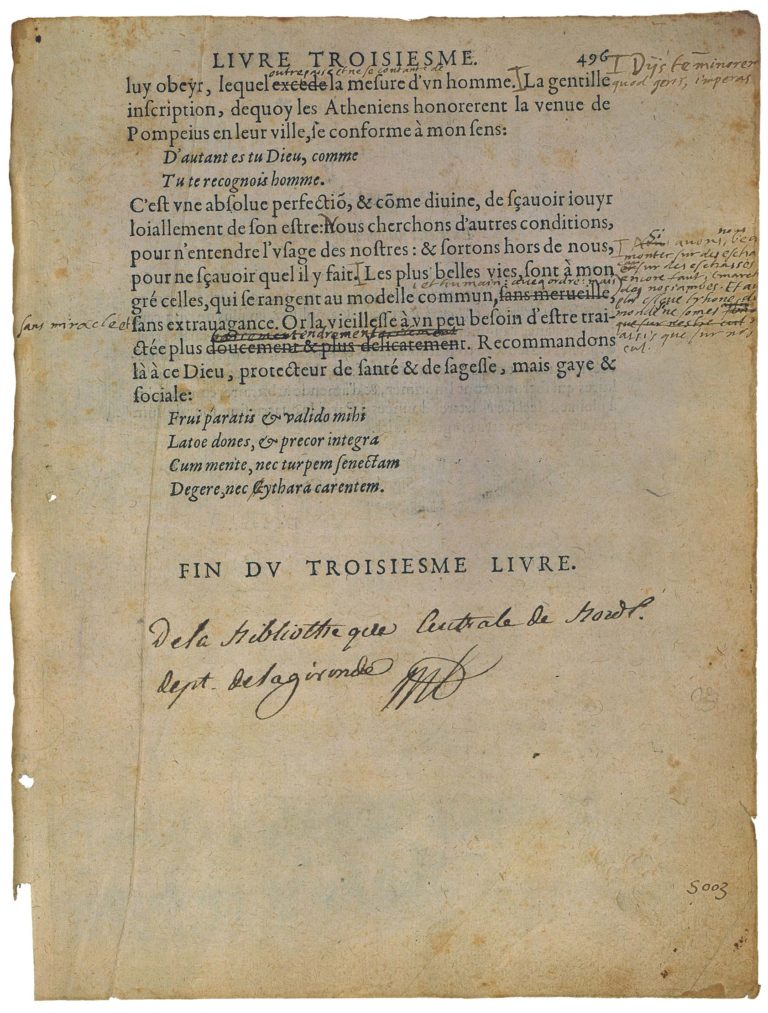 LIVRE TROISIESME. 496
outrepasse et ne se contante de
luy obeyr, lequel excede la mesure d'vn homme. La gentille
inscription, dequoy les Atheniens honorerent la venue de
Pompeius en leur ville, se conforme à mon sens:
D'autant es tu Dieu, comme
Tu te recognois homme.
C'est vne absolue perfectiō, & cōme diuine, de sçauoir iouyr
loiallement de son estre: Nous cherchons d'autres conditions,
pour n'entendre l'vsage des nostres: & sortons hors de nous,
pour ne sçauoir quel il y fait. Les plus belles vies, sont à mon
et humain: aueq ordre: mais
gré celles, qui se rangent au modelle commun, sans merueille,
sans extrauagance. Or la vieillesse à vn peu besoin d'estre trai-
tendrement
ctée plus doucement & plus delicatement. Recommandons
là à ce Dieu, protecteur de santé & de sagesse, mais gaye &
sociale:
Frui paratis & valido mihi
Latoe dones, & precor integra
Cum mente, nec turpem senectam
Degere, nec Cythara carentem.
FIN DV TROISIESME LIVRE.
De la Bibliotheque Centrale de Bord.
dept. de la gironde
Dijs te minorem
quod geris, imperas
Si auons
monter sur des escha
sur des eschasses
encore faut, marcher
de nos iambes. Et au
plus
ne somes
assis que sur nos
cul.
sans miracle et
S 003